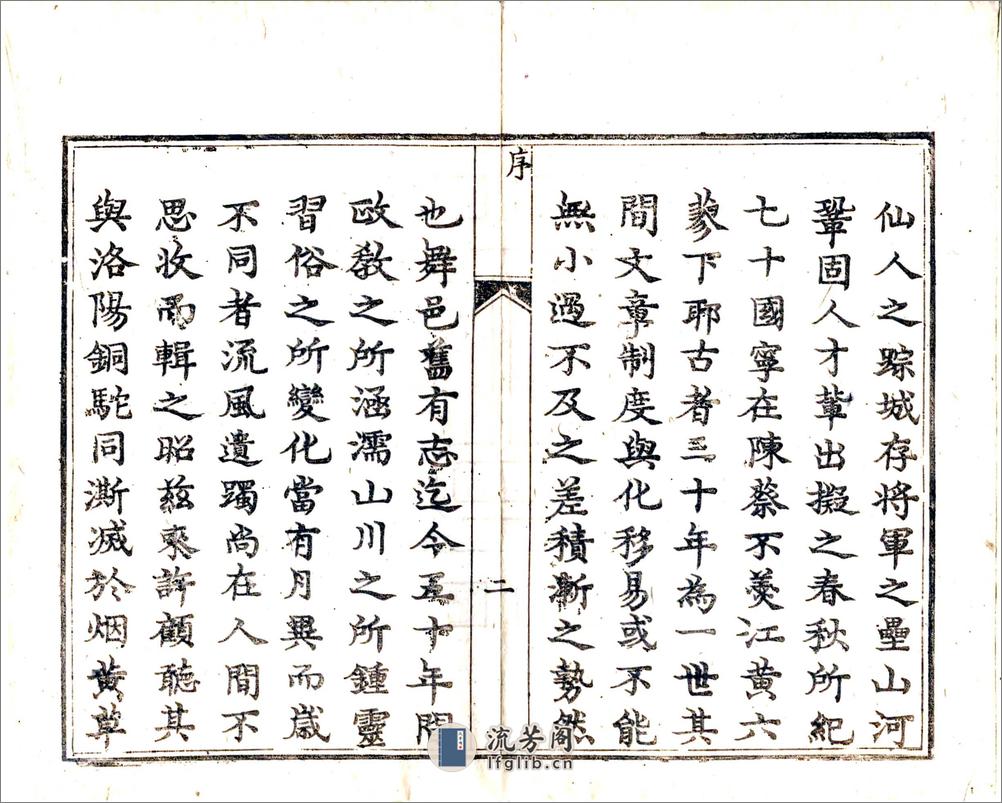 仙人之踪城存将軍之壘山河
鞏固人才輩出擬之春秋所紀
七十國寧在陳蔡不羮江黄六
蓼下耶古者三十年為一世其
間文章制度與化移易或不能
無小過不及之差積漸之勢然
序
二
也舞邑舊有志迄今五十年間
政教之所涵濡山川之所鍾靈
習俗之所變化當有月異而歲
不同者流風遺躅尚在人間不
思收而輯之昭兹來許顧聽其
與洛陽銅駝同澌滅於烟黄草
流芳阁
lfglib.cn